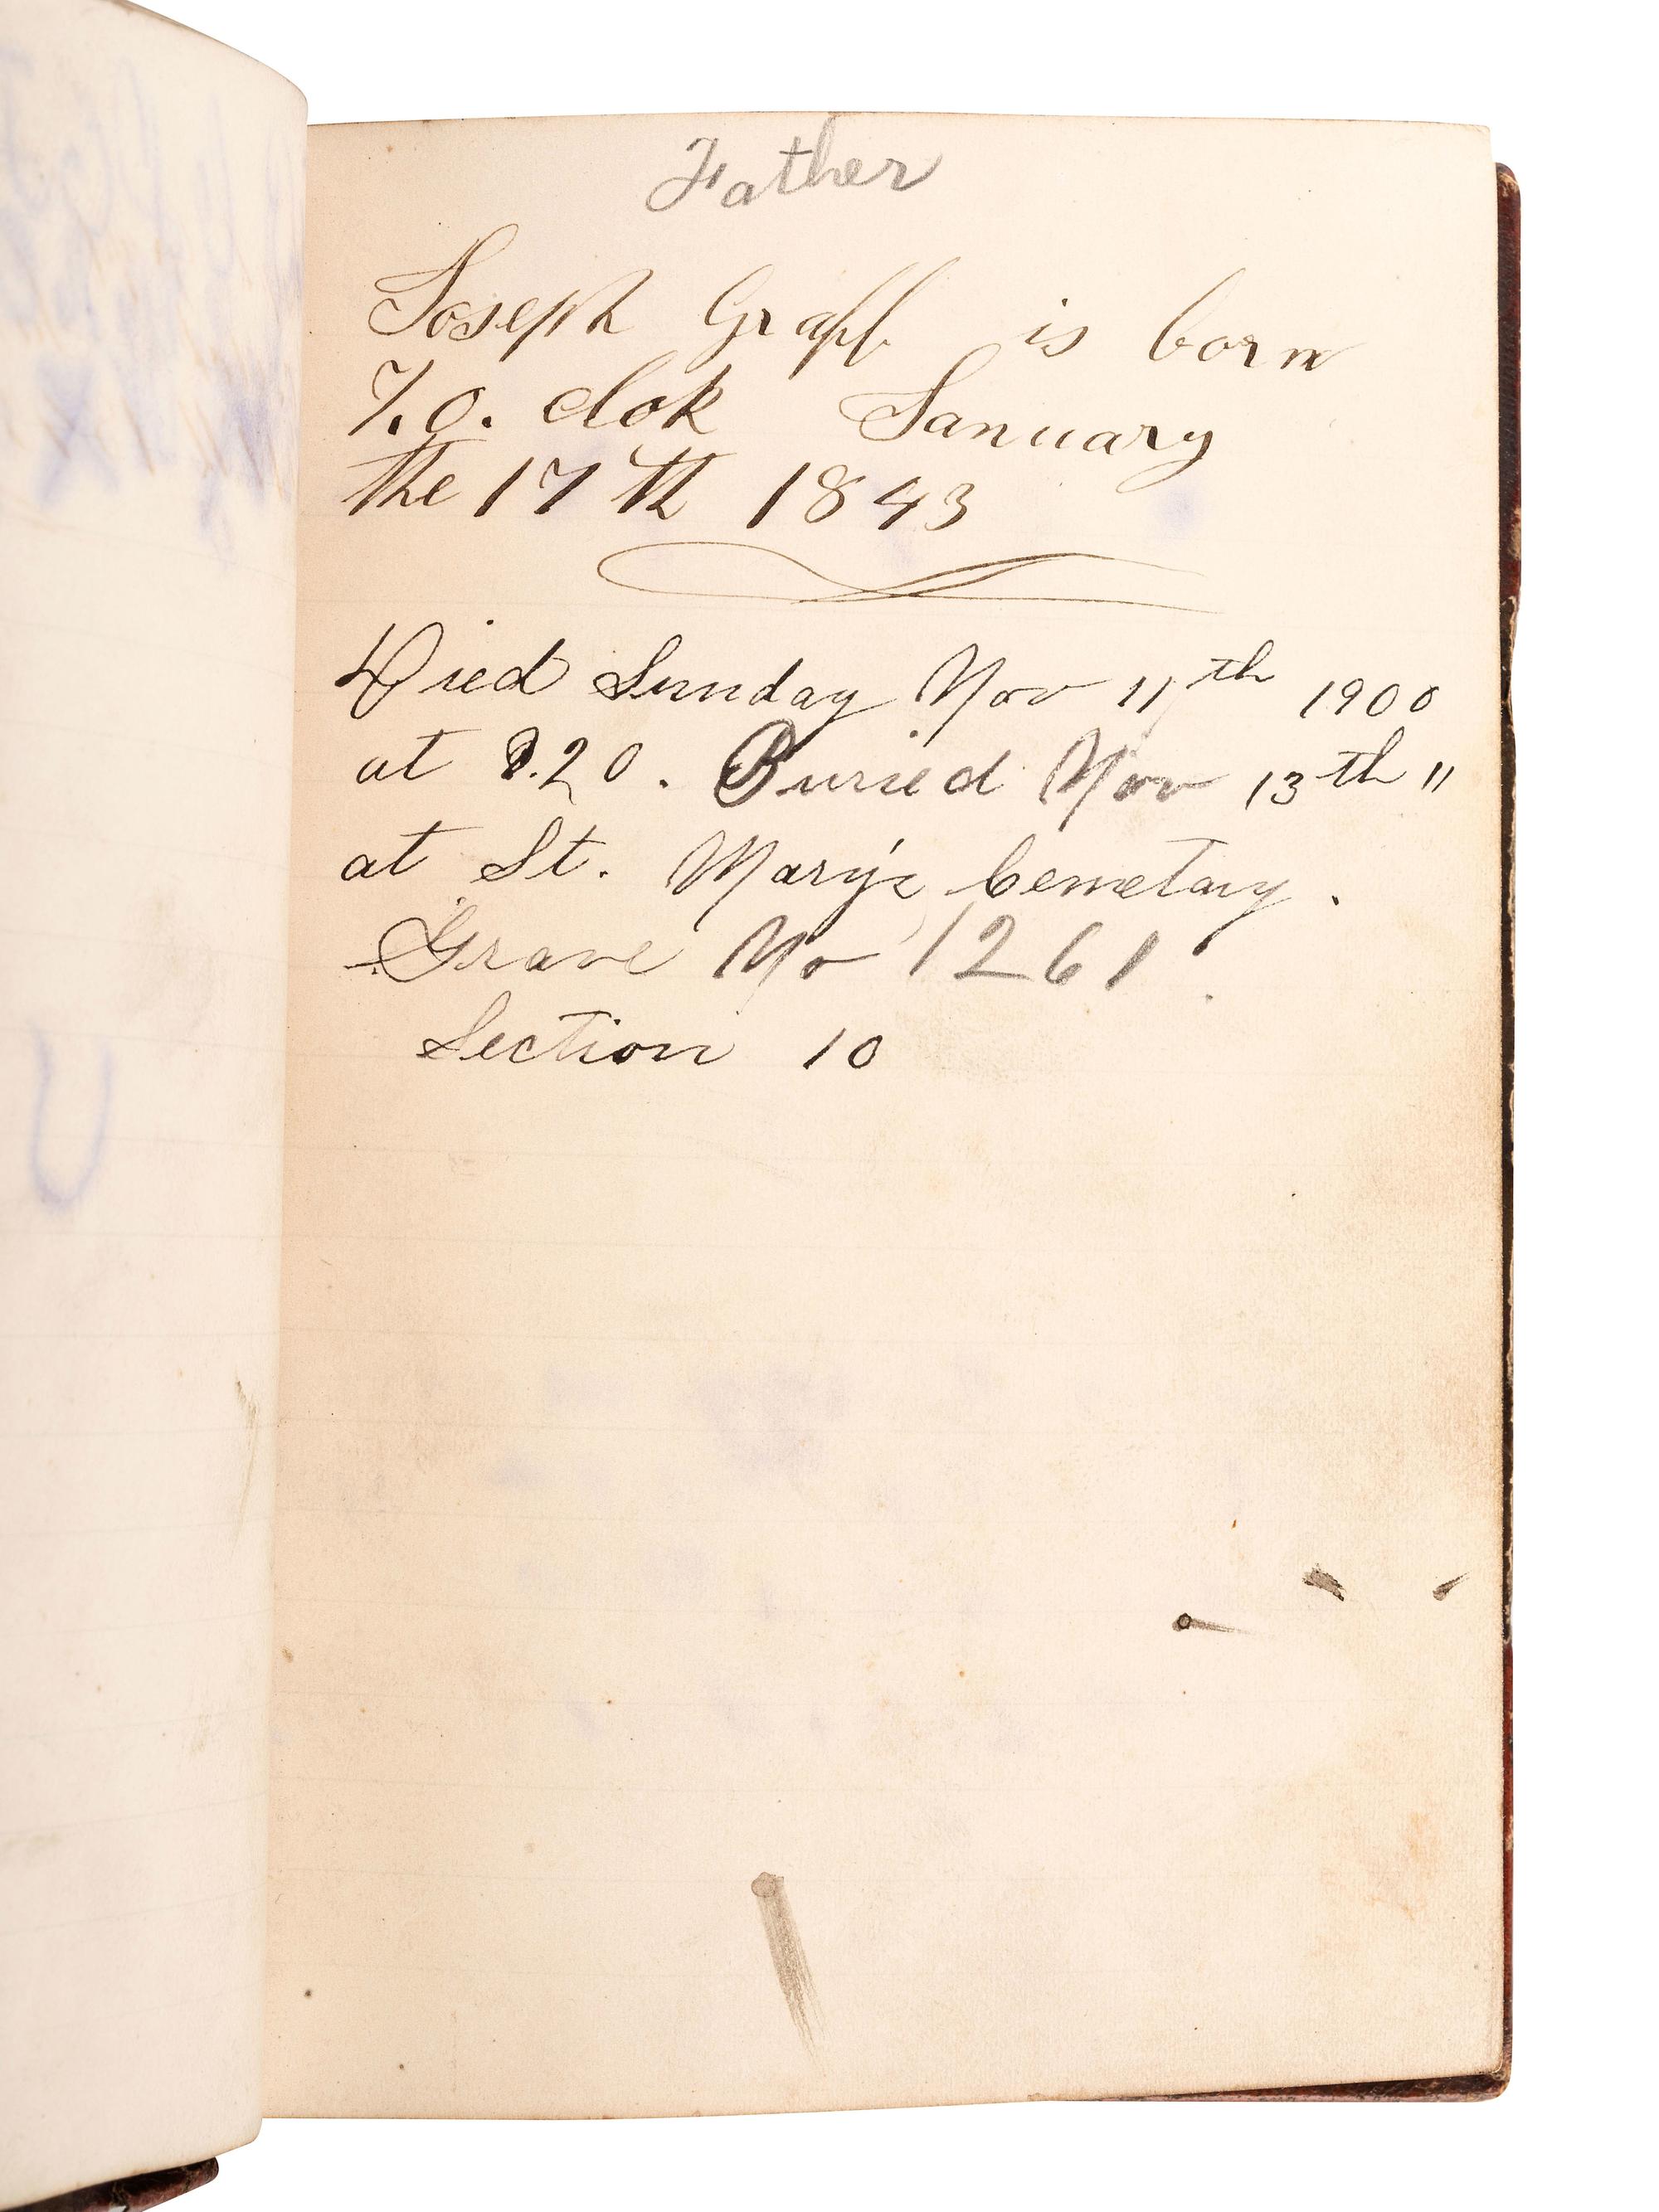 Father
Joseph Graff is born
7.o. clok January
the 17th 1843
Died Sunday Nov 11th 1900
at .20. Buried Nov 13th "
at St. Mary's Cemetary.
Grave No 1261.
Section 10